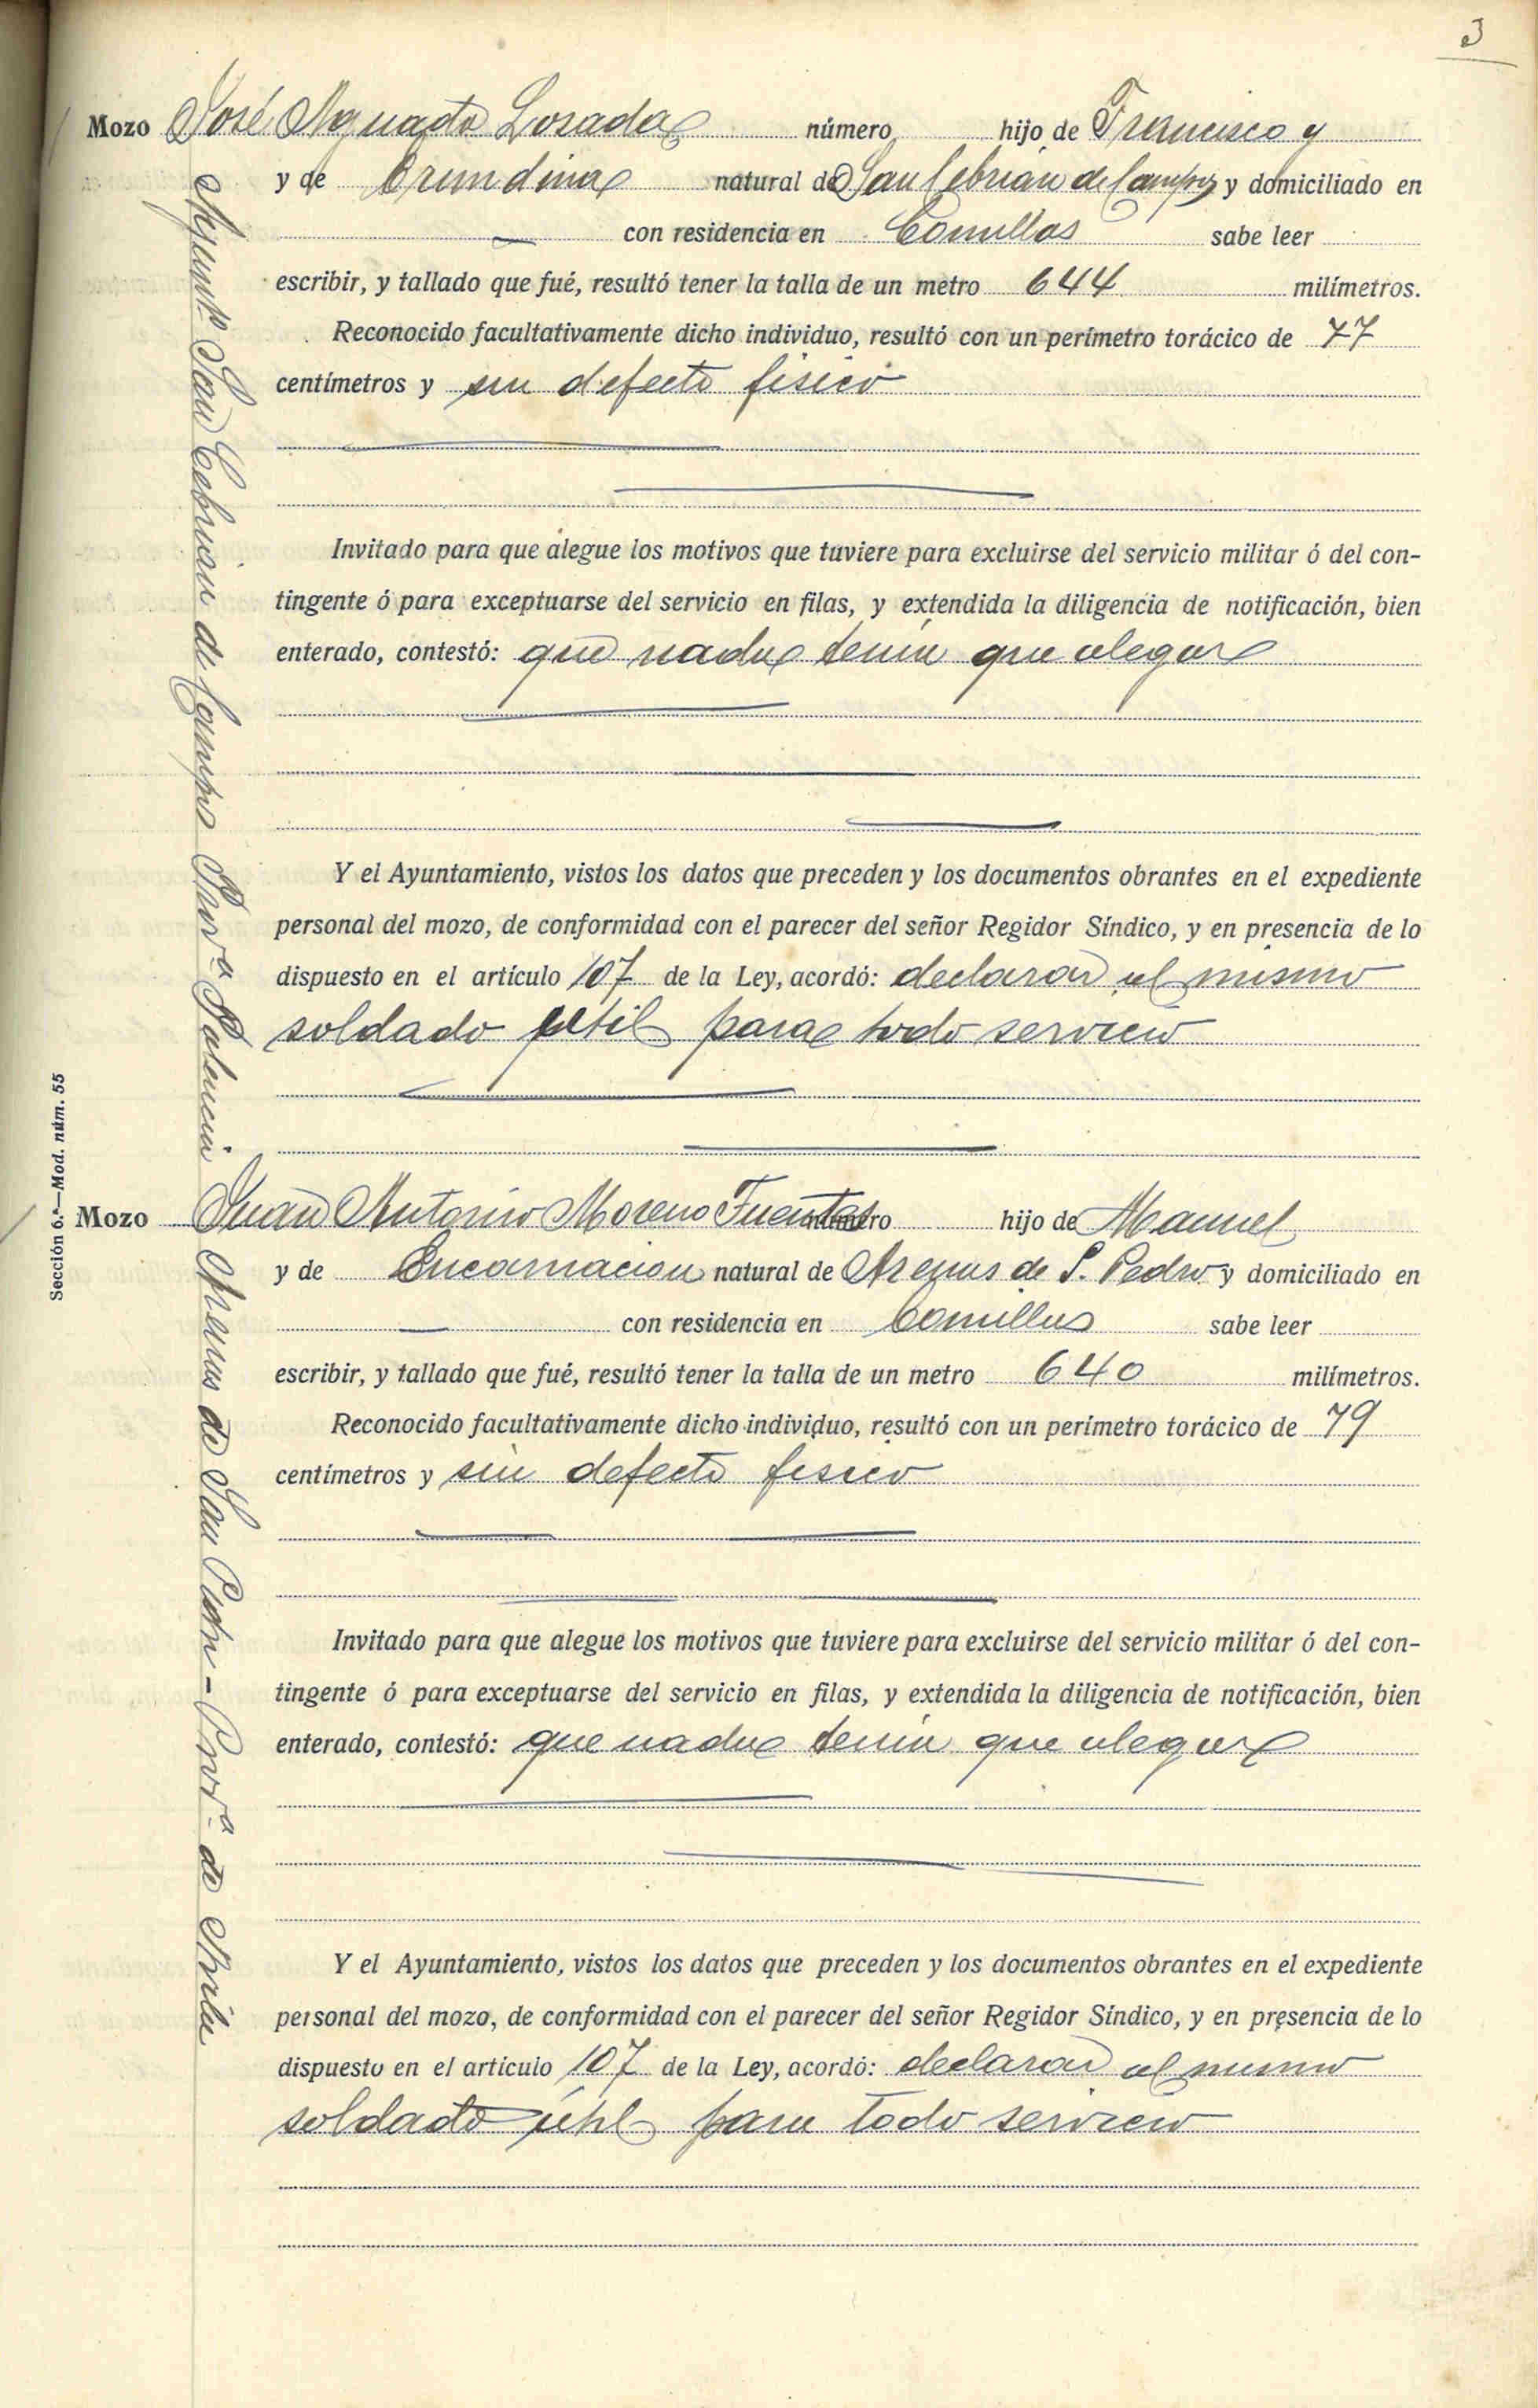 3
Mozo José Aguado Losada número hijo de Francisco y
y de Orundina natural de San Cebrián de Campos y domiciliado en
con residencia en Comillas sabe leer
escribir, y tallado que fué, resultó tener la talla de un metro 644 milímetros.
Reconocido facultativamente dicho individuo, resultó con un perímetro torácico de 77
centímetros y sin defecto fisico
Invitado para que alegue los motivos que tuviere para excluirse del servicio militar ó del con-
tingente ó para exceptuarse del servicio en filas, y extendida la diligencia de notificación, bien
enterado, contestó: que nada tenía que alegar
Y el Ayuntamiento, vistos los datos que preceden y los documentos obrantes en el expediente
personal del mozo, de conformidad con el parecer del señor Regidor Síndico, y en presencia de lo
dispuesto en el artículo 107 de la Ley, acordó: declarar al mismo
soldado útil para todo servicio
Ayuntº San Cebrián de Campos Provª Palencia
Sección 6.ª—Mod. núm. 55
Mozo Juan Antonio Moreno Fuentes número hijo de Manuel
y de Encarnacion natural de Arenas de S. Pedro y domiciliado en
con residencia en Comillas sabe leer
escribir, y tallado que fué, resultó tener la talla de un metro 640 milímetros.
Reconocido facultativamente dicho individuo, resultó con un perímetro torácico de 79
centímetros y sin defecto fisico
Invitado para que alegue los motivos que tuviere para excluirse del servicio militar ó del con-
tingente ó para exceptuarse del servicio en filas, y extendida la diligencia de notificación, bien
enterado, contestó: que nada tenía que alegar
Y el Ayuntamiento, vistos los datos que preceden y los documentos obrantes en el expediente
personal del mozo, de conformidad con el parecer del señor Regidor Síndico, y en presencia de lo
dispuesto en el artículo 107 de la Ley, acordó: declarar al mismo
soldado útil para todo servicio
Arenas de San Pedro - Provª de Avila